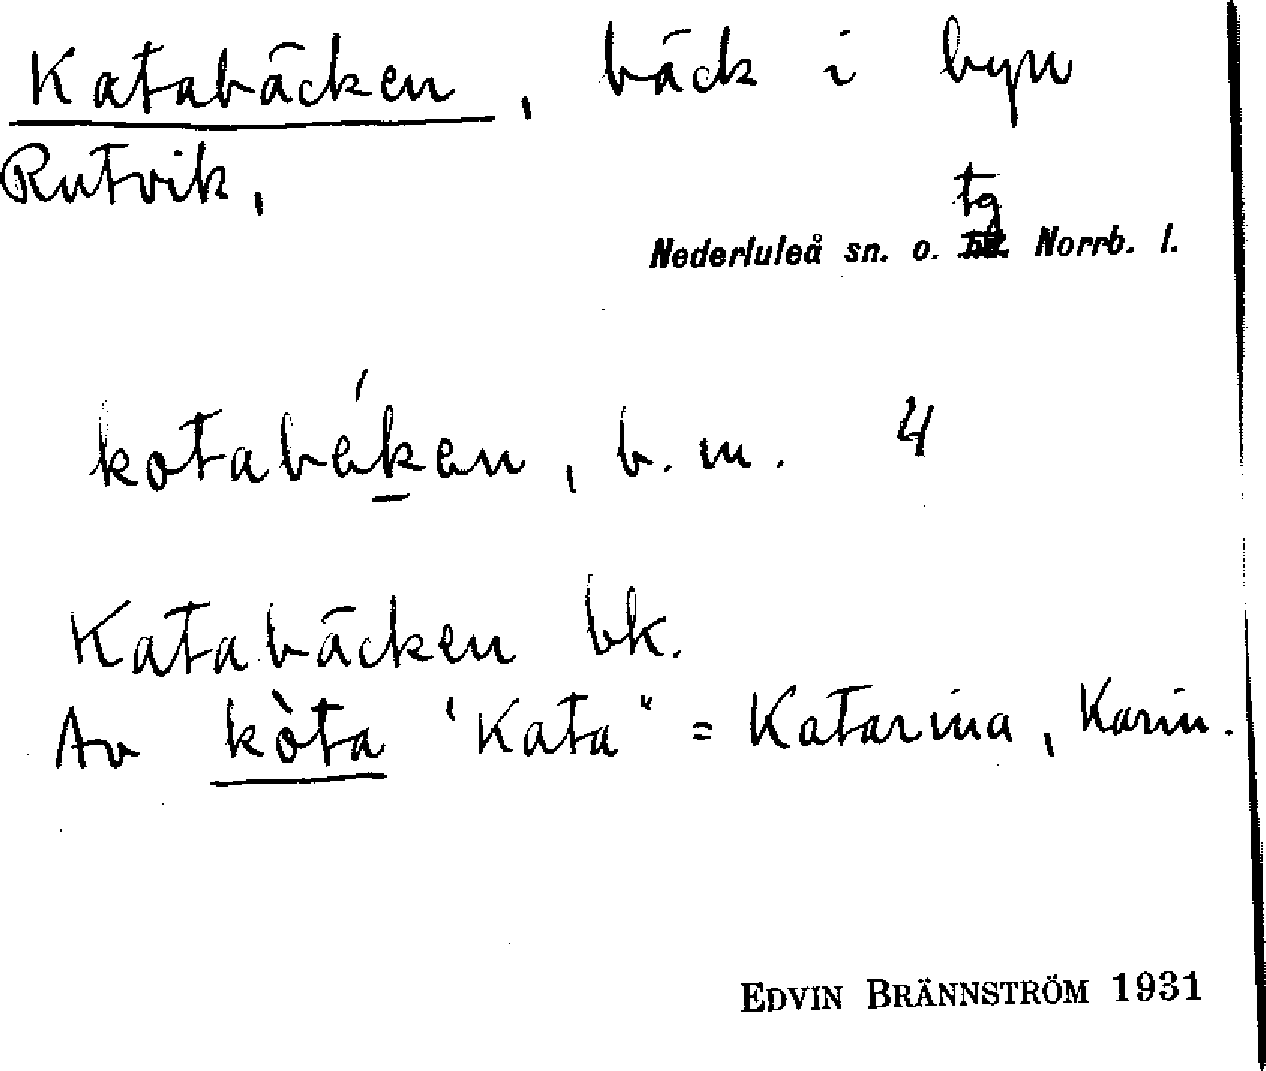 Katabäcken, bäck i byn
Rutvik,
tg
Nederluleå sn. o. Norrb. l.
kotabéken, b. m. 4
Katabäcken bk.
Av kòta 'Kata" = Katarina, Karin.
EDVIN BRÄNNSTRÖM 1931